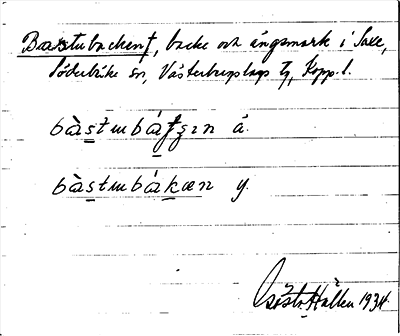 Bastubacken†, backe och ängsmark i
Söderbärke sn, Västerbergslags Kopp. l.
bàstmbáƭʂɪn ä.
bàstmbákæn y.
Gösta Hallen 1934